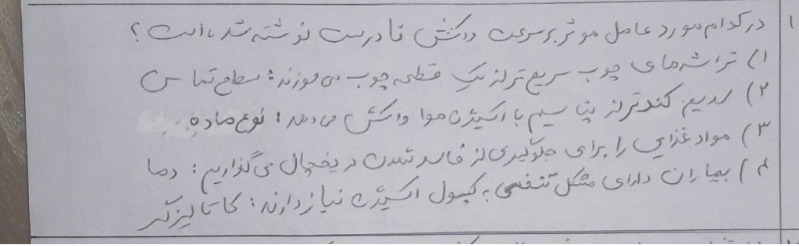 ۱ در کدام مورد عامل موثر بر سرعت واکنش نادرست نوشته شده است؟
۱) تراشه‌های چوب سریع‌تر از یک قطعه چوب می‌سوزند: سطح تماس
۲) سدیم کندتر از پتاسیم با اکسیژن هوا واکنش می‌دهد: نوع ماده.
۳) مواد غذایی را برای جلوگیری از فاسد شدن در یخچال می‌گذاریم: دما
۴) بیماران دارای مشکل تنفسی به کپسول اکسیژن نیاز دارند: کاتالیزگر